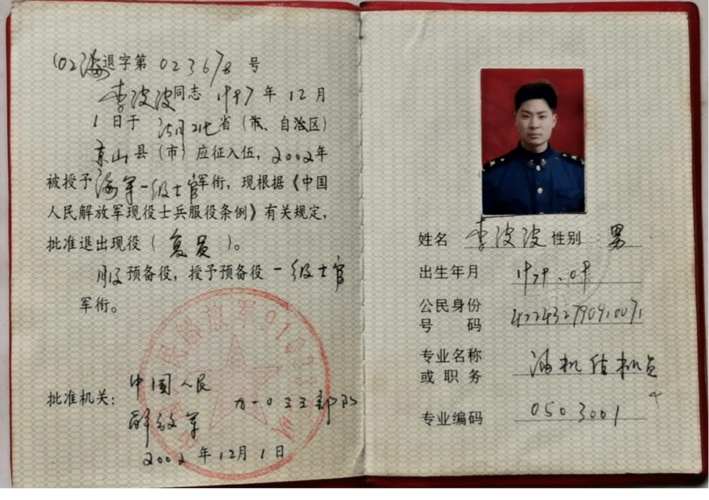 (02海退字第023678号
李波波同志1997年12月
1日于湖北省（市、自治区）
京山县（市）应征入伍，2002年
被授予海军一级士官军衔，现根据《中国
人民解放军现役士兵服役条例》有关规定，
批准退出现役（复员）。
服预备役，授予预备役一级士官
军衔。
批准机关：中国人民
解放军九一〇三三部队
2002年12月1日
姓名 李波波 性别 男
出生年月
公民身份
号码
专业名称
或职务
专业编码 0503001